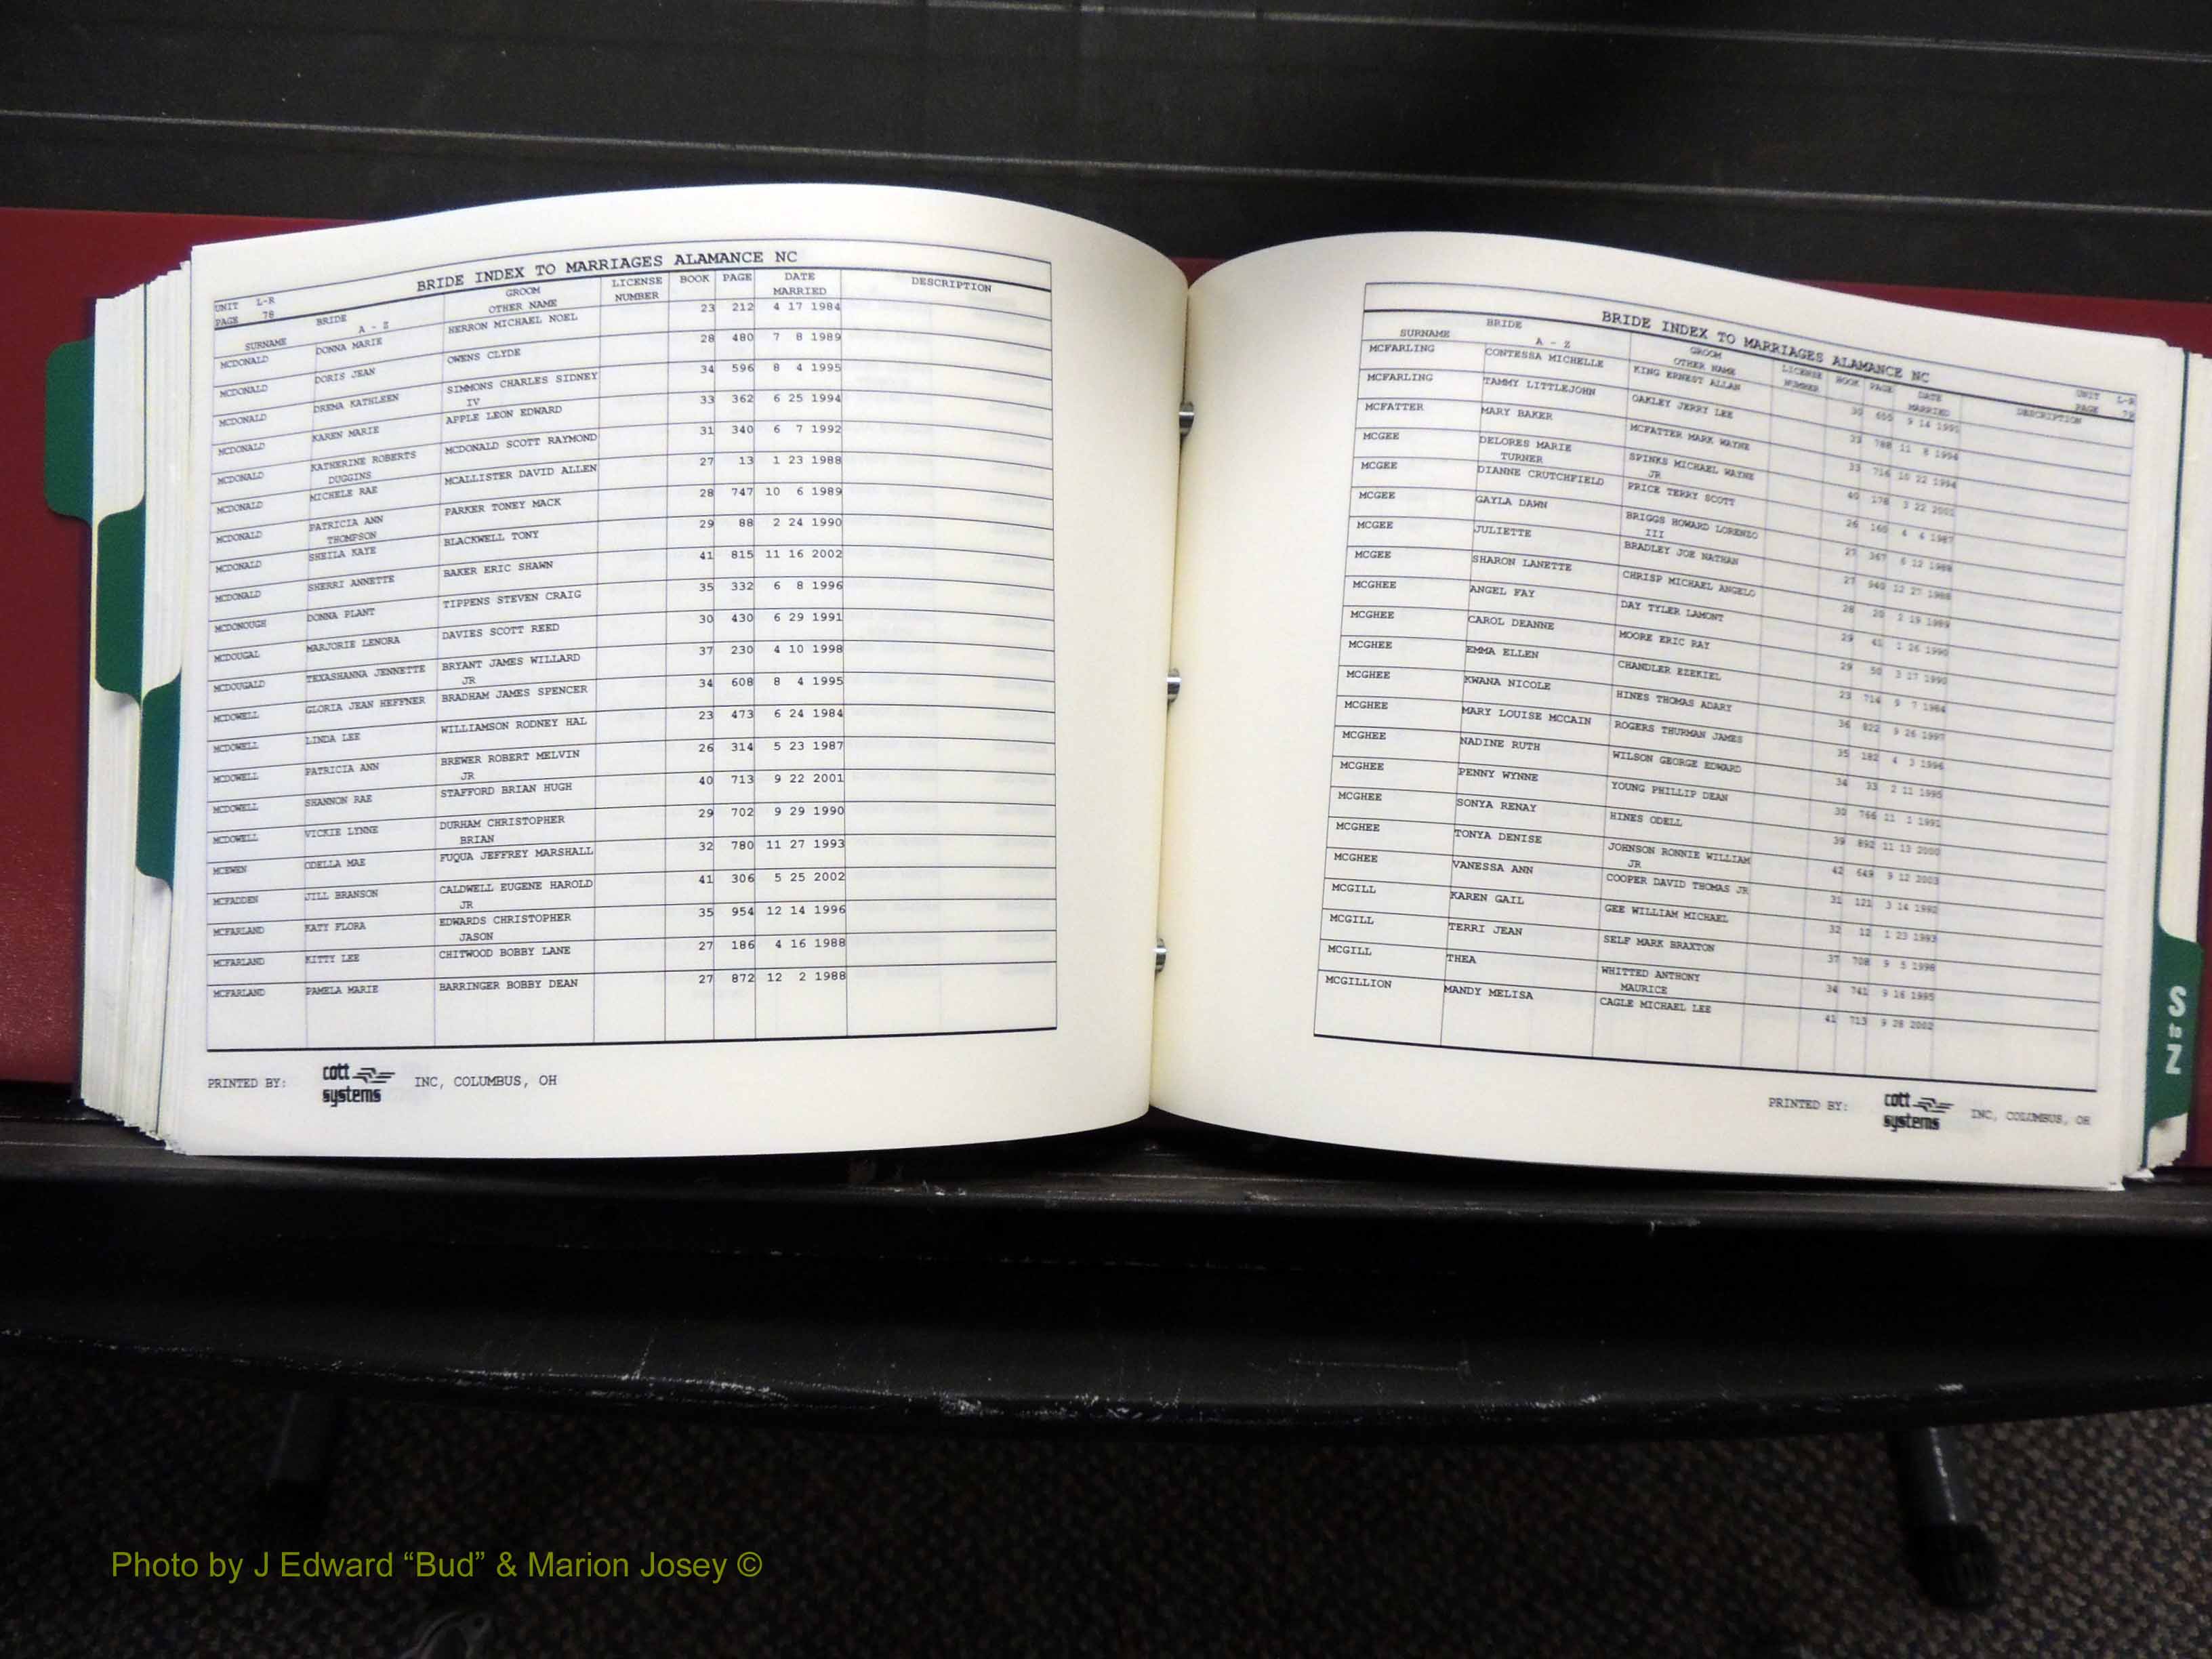 BRIDE INDEX TO MARRIAGES ALAMANCE NC
UNIT L-R
PAGE 78
SURNAME BRIDE A - Z GROOM OTHER NAME LICENSE NUMBER BOOK PAGE DATE MARRIED DESCRIPTION
MCDONALD DONNA MARIE HERRON MICHAEL NOEL 23 212 4 17 1984
MCDONALD DORIS JEAN OWENS CLYDE 28 480 7 8 1989
MCDONALD DREMA KATHLEEN SIMMONS CHARLES SIDNEY 34 596 8 4 1995
IV
MCDONALD KAREN MARIE APPLE LEON EDWARD 33 362 6 25 1994
MCDONALD KATHERINE ROBERTS MCDONALD SCOTT RAYMOND 31 340 6 7 1992
DUGGINS
MCDONALD MICHELE RAE MCALLISTER DAVID ALLEN 27 13 1 23 1988
MCDONALD PATRICIA ANN PARKER TONEY MACK 28 747 10 6 1989
THOMPSON
MCDONALD SHEILA KAYE BLACKWELL TONY 29 88 2 24 1990
MCDONALD SHERRI ANNETTE BAKER ERIC SHAWN 41 815 11 16 2002
MCDONOUGH DONNA PLANT TIPPENS STEVEN CRAIG 35 332 6 8 1996
MCDOUGAL MARJORIE LENORA DAVIES SCOTT REED 30 430 6 29 1991
MCDOUGALD TEXASHANNA JENNETTE BRYANT JAMES WILLARD 37 230 4 10 1998
JR
MCDOWELL GLORIA JEAN HEFFNER BRADHAM JAMES SPENCER 34 608 8 4 1995
MCDOWELL LINDA LEE WILLIAMSON RODNEY HAL 23 473 6 24 1984
MCDOWELL PATRICIA ANN BREWER ROBERT MELVIN 26 314 5 23 1987
JR
MCDOWELL SHANNON RAE STAFFORD BRIAN HUGH 40 713 9 22 2001
MCDOWELL VICKIE LYNNE DURHAM CHRISTOPHER 29 702 9 29 1990
BRIAN
MCEWEN ODELLA MAE FUQUA JEFFREY MARSHALL 32 780 11 27 1993
MCFADDEN JILL BRANSON CALDWELL EUGENE HAROLD 41 306 5 25 2002
JR
MCFARLAND KATY FLORA EDWARDS CHRISTOPHER 35 954 12 14 1996
JASON
MCFARLAND KITTY LEE CHITWOOD BOBBY LANE 27 186 4 16 1988
MCFARLAND PAMELA MARIE BARRINGER BOBBY DEAN 27 872 12 2 1988
PRINTED BY: cott systems INC, COLUMBUS, OH
BRIDE INDEX TO MARRIAGES ALAMANCE NC
UNIT L-R
PAGE 79
SURNAME BRIDE A - Z GROOM OTHER NAME LICENSE NUMBER BOOK PAGE DATE MARRIED DESCRIPTION
MCFARLING CONTESSA MICHELLE KING ERNEST ALLAN 30 605 9 14 1991
MCFARLING TAMMY LITTLEJOHN OAKLEY JERRY LEE 33 788 11 8 1994
MCFATTER MARY BAKER MCFATTER MARK WAYNE 33 716 10 22 1994
MCGEE DELORES MARIE SPINKS MICHAEL WAYNE 40 178 3 22 2001
TURNER JR
MCGEE DIANNE CRUTCHFIELD PRICE TERRY SCOTT 26 160 4 4 1987
MCGEE GAYLA DAWN BRIGGS HOWARD LORENZO 27 367 6 12 1988
III
MCGEE JULIETTE BRADLEY JOE NATHAN 27 940 12 27 1988
MCGEE SHARON LANETTE CHRISP MICHAEL ANGELO 28 20 1 19 1989
MCGHEE ANGEL FAY DAY TYLER LAMONT 29 41 1 26 1990
MCGHEE CAROL DEANNE MOORE ERIC RAY 29 50 3 17 1990
MCGHEE EMMA ELLEN CHANDLER EZEKIEL 23 714 9 7 1984
MCGHEE KWANA NICOLE HINES THOMAS ADARY 36 822 9 26 1997
MCGHEE MARY LOUISE MCCAIN ROGERS THURMAN JAMES 35 182 4 3 1996
MCGHEE NADINE RUTH WILSON GEORGE EDWARD 34 93 2 11 1995
MCGHEE PENNY WYNNE YOUNG PHILLIP DEAN 30 766 11 1 1991
MCGHEE SONYA RENAY HINES ODELL 39 892 11 13 2000
MCGHEE TONYA DENISE JOHNSON RONNIE WILLIAM 42 649 9 12 2003
JR
MCGHEE VANESSA ANN COOPER DAVID THOMAS JR 31 121 3 14 1992
MCGILL KAREN GAIL GEE WILLIAM MICHAEL 32 12 1 23 1993
MCGILL TERRI JEAN SELF MARK BRAXTON 37 708 9 5 1998
MCGILL THEA WHITTED ANTHONY 34 741 9 16 1995
MAURICE
MCGILLION MANDY MELISA CAGLE MICHAEL LEE 41 713 9 28 2002
PRINTED BY: cott systems INC, COLUMBUS, OH
S to Z
Photo by J Edward “Bud” & Marion Josey ©